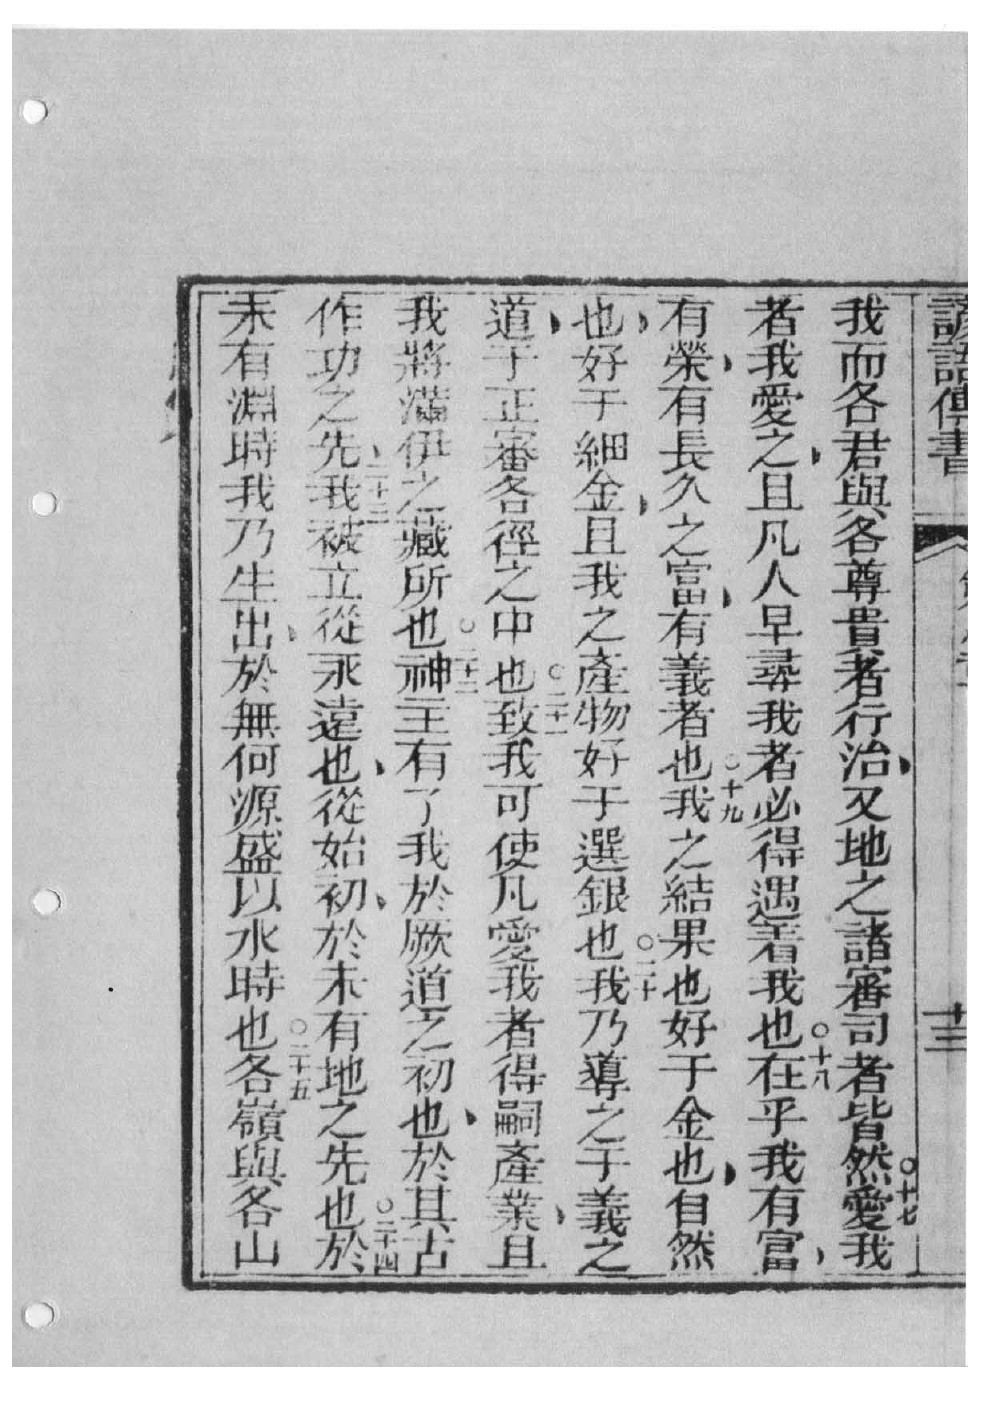 諺語傳書
廿三
我而各君與各尊貴者行治又地之諸審司者皆然○十七愛我
者我愛之且凡人早尋我者必得遇着我也○十八在乎我有富
有榮有長久之富有義者也○十九我之結果也好于金也自然
也好于細金且我之產物好于選銀也○二十我乃導之于義之
道于正審各徑之中也○二十一致我可使凡愛我者得嗣產業且
我將滿伊之藏所也○二十二神主有了我於厥道之初也於其古
作功之先○二十三我被立從永遠也從始初於未有地之先也○二十四於
未有淵時我乃生出於無何源盛以水時也○二十五各嶺與各山